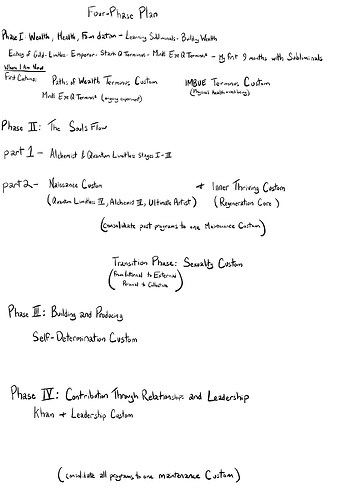 Four-Phase Plan
Phase I: Wealth, Health, Foundation - Learning Subliminals - Building Wealth
Echoes of Gold - Limitless - Emperor - Stark Q Terminus - Mind's Eye Q Terminus - My first 9 months with Subliminals
Where I Am Now
First Customs: Paths of Wealth Terminus Custom IMBUE Terminus Custom
Mind's Eye Q Terminus (ongoing experiment) (Physical Health and Healing)
Phase II: The Souls Flow
part 1 - Alchemist & Quantum Limitless Stages I-II
part 2 - Naissance Custom + Inner Thriving Custom
(Quantum Limitless IV, Alchemist IV, Ultimate Artist) (Regeneration Core)
(consolidate past programs to one Maintenance Custom)
Transition Phase: Sexuality Custom
(Foundational to External
Personal to Collective)
Phase III: Building and Producing
Self-Determination Custom
Phase IV: Contribution Through Relationships and Leadership
Khan + Leadership Custom
(consolidate all programs to one maintenance Custom)